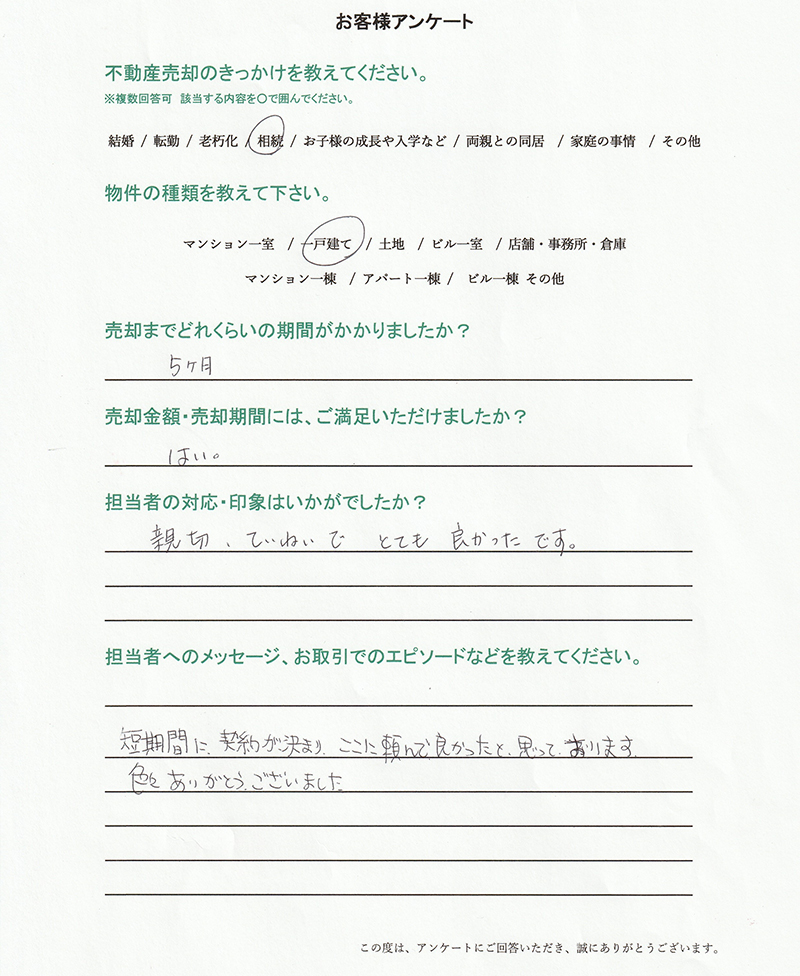 お客様アンケート
不動産売却のきっかけを教えてください。
※複数回答可 該当する内容を〇で囲んでください。
結婚 / 転勤 / 老朽化 / 相続 / お子様の成長や入学など / 両親との同居 / 家庭の事情 / その他
物件の種類を教えて下さい。
マンション一室 / 一戸建て / 土地 / ビル一室 / 店舗・事務所・倉庫
マンション一棟 / アパート一棟 / ビル一棟 その他
売却までどれくらいの期間がかかりましたか？
5ヶ月
売却金額・売却期間には、ご満足いただけましたか？
はい。
担当者の対応・印象はいかがでしたか？
親切、ていねいで とても 良かった です。
担当者へのメッセージ、お取引でのエピソードなどを教えてください。
短期間に、契約が決まり、ここに頼んで、良かったと、思って、おります。
色々ありがとう、ございました
この度は、アンケートにご回答いただき、誠にありがとうございます。